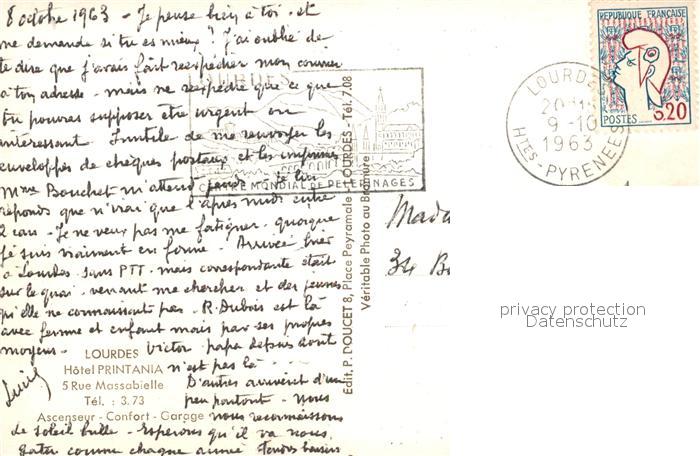 8 octobre 1963 - Je pense bien à toi - et
me demande si tu es mieux ? J'ai oublié de
te dire que j'avais fait réexpédier mon courrier
à ton adresse - mais ne réexpédie que ce que
tu pourras supposer être urgent ou
intéressant. Inutile de me renvoyer les
enveloppes de chèques postaux et les imprimés
Mme Bouchet m'attend je lui
réponds que n'irai que l'après midi entre
2 cars - Je ne veux pas me fatiguer - quoique
je suis vraiment en forme - Arrivée hier
à Lourdes sans PTT - mais correspondante était
sur le quai - venant me chercher et des jeunes
qu'elle ne connaissait pas - R. Dubois est là
avec femme et enfant mais par ses propres
moyens - Victor papa depuis août
n'est pas là -
D'autres arrivent d'un
peu partout - Nous
nous reconnaissons
le soleil brille - Espérons qu'il va nous
gâter comme chaque année Tendres baisers
LOURDES
Hôtel PRINTANIA
5 Rue Massabielle
Tél. : 3.73
Ascenseur - Confort - Garage
LOURDES
CENTRE MONDIAL DE PÈLERINAGES
Edit. P. DOUCET 8, Place Peyramale - LOURDES - Tél. 7.08
Véritable Photo au Bromure
REPUBLIQUE FRANÇAISE
POSTES 0.20
LOURDES
9-10
1963
HTES-PYRENEES
Mada
34 B
privacy protection
Datenschutz